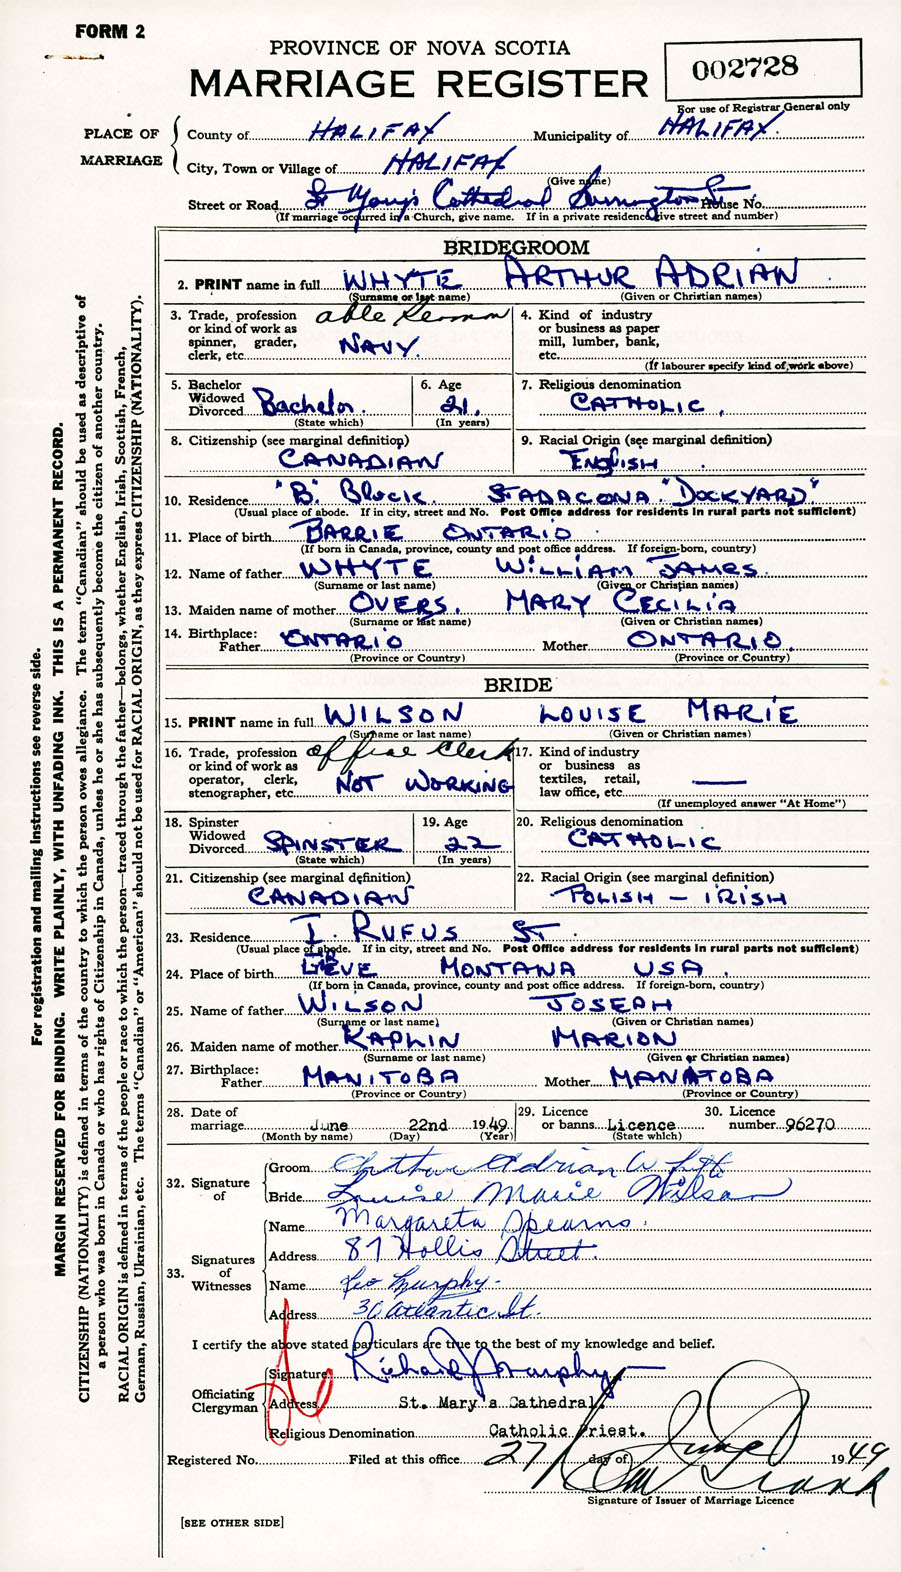 FORM 2
PROVINCE OF NOVA SCOTIA
MARRIAGE REGISTER
002728
For use of Registrar General only
PLACE OF MARRIAGE
County of HALIFAX Municipality of HALIFAX.
City, Town or Village of HALIFAX
(Give name)
Street or Road St Mary's Cathedral Barrington St. House No.
(If marriage occurred in a Church, give name. If in a private residence give street and number)
BRIDEGROOM
2. PRINT name in full WHYTE ARTHUR ADRIAN
(Surname or last name) (Given or Christian names)
3. Trade, profession or kind of work as spinner, grader, clerk, etc. able Seaman NAVY.
4. Kind of industry or business as paper mill, lumber, bank, etc.
(If labourer specify kind of work above)
5. Bachelor Widowed Divorced Bachelor.
(State which)
6. Age 21.
(In years)
7. Religious denomination CATHOLIC.
8. Citizenship (see marginal definition) CANADIAN
9. Racial Origin (see marginal definition) ENGLISH
10. Residence "B" Block. STADACONA "DOCKYARD"
(Usual place of abode. If in city, street and No. Post Office address for residents in rural parts not sufficient)
11. Place of birth BARRIE ONTARIO
(If born in Canada, province, county and post office address. If foreign-born, country)
12. Name of father WHYTE WILLIAM JAMES.
(Surname or last name) (Given or Christian names)
13. Maiden name of mother OVERS. MARY CECILIA
(Surname or last name) (Given or Christian names)
14. Birthplace: Father ONTARIO Mother ONTARIO.
(Province or Country) (Province or Country)
BRIDE
15. PRINT name in full WILSON LOUISE MARIE
(Surname or last name) (Given or Christian names)
16. Trade, profession or kind of work as operator, clerk, stenographer, etc. office clerk NOT WORKING
17. Kind of industry or business as textiles, retail, law office, etc. —
(If unemployed answer "At Home")
18. Spinster Widowed Divorced SPINSTER
(State which)
19. Age 22
(In years)
20. Religious denomination CATHOLIC
21. Citizenship (see marginal definition) CANADIAN
22. Racial Origin (see marginal definition) POLISH - IRISH
23. Residence I. RUFUS ST
(Usual place of abode. If in city, street and No. Post Office address for residents in rural parts not sufficient)
24. Place of birth MONTANA USA.
(If born in Canada, province, county and post office address. If foreign-born, country)
25. Name of father WILSON JOSEPH
(Surname or last name) (Given or Christian names)
26. Maiden name of mother KAPLIN MARION
(Surname or last name) (Given or Christian names)
27. Birthplace: Father MANITOBA Mother MANATOBA
(Province or Country) (Province or Country)
28. Date of marriage June 22nd 1949
(Month by name) (Day) (Year)
29. Licence or banns Licence
(State which)
30. Licence number 96270
32. Signature of
Groom Arthur Adrian Whyte
Bride Louise Marie Wilson
33. Signatures of Witnesses
Name Margareta Spearns.
Address 87 Hollis Street.
Name Leo Murphy.
Address 30 Atlantic St.
I certify the above stated particulars are true to the best of my knowledge and belief.
Officiating Clergyman
Signature Richard J Murphy
Address St. Mary's Cathedral.
Religious Denomination Catholic Priest.
Registered No. Filed at this office 27 day of June 1949
Signature of Issuer of Marriage Licence
[SEE OTHER SIDE]
For registration and mailing instructions see reverse side.
MARGIN RESERVED FOR BINDING. WRITE PLAINLY, WITH UNFADING INK. THIS IS A PERMANENT RECORD.
CITIZENSHIP (NATIONALITY) is defined in terms of the country to which the person owes allegiance. The term "Canadian" should be used as descriptive of
a person who was born in Canada or who has rights of Citizenship in Canada, unless he or she has subsequently become the citizen of another country.
RACIAL ORIGIN is defined in terms of the people or race to which the person—traced through the father—belongs, whether English, Irish, Scottish, French,
German, Russian, Ukrainian, etc. The terms "Canadian" or "American" should not be used for RACIAL ORIGIN, as they express CITIZENSHIP (NATIONALITY).